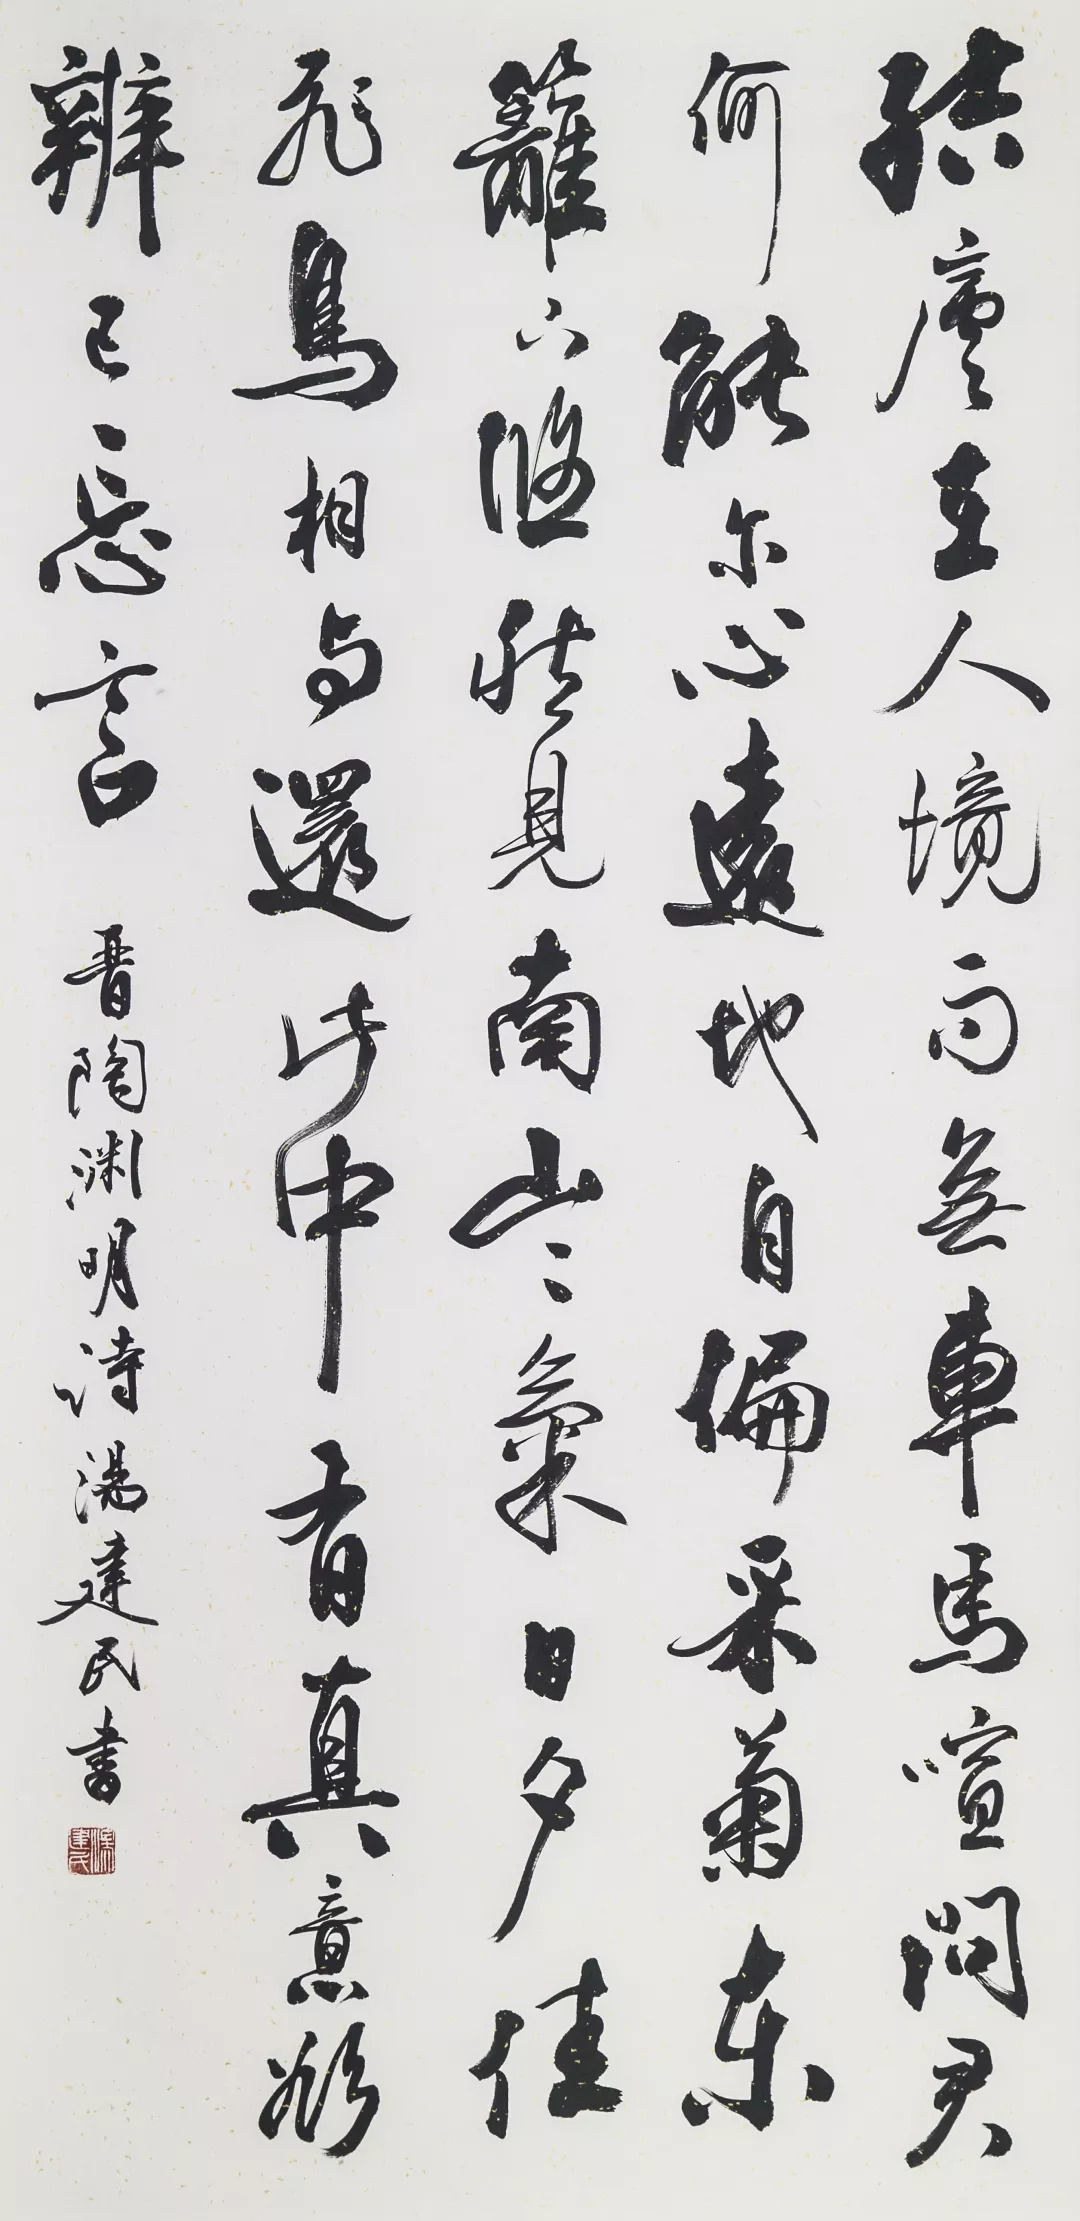 结庐在人境而無車馬喧問君
何能尔心遠地自偏采菊東
籬下悠然見南山山氣日夕佳
飛鳥相与還此中有真意欲
辨已忘言
晋陶渊明诗湯建民書